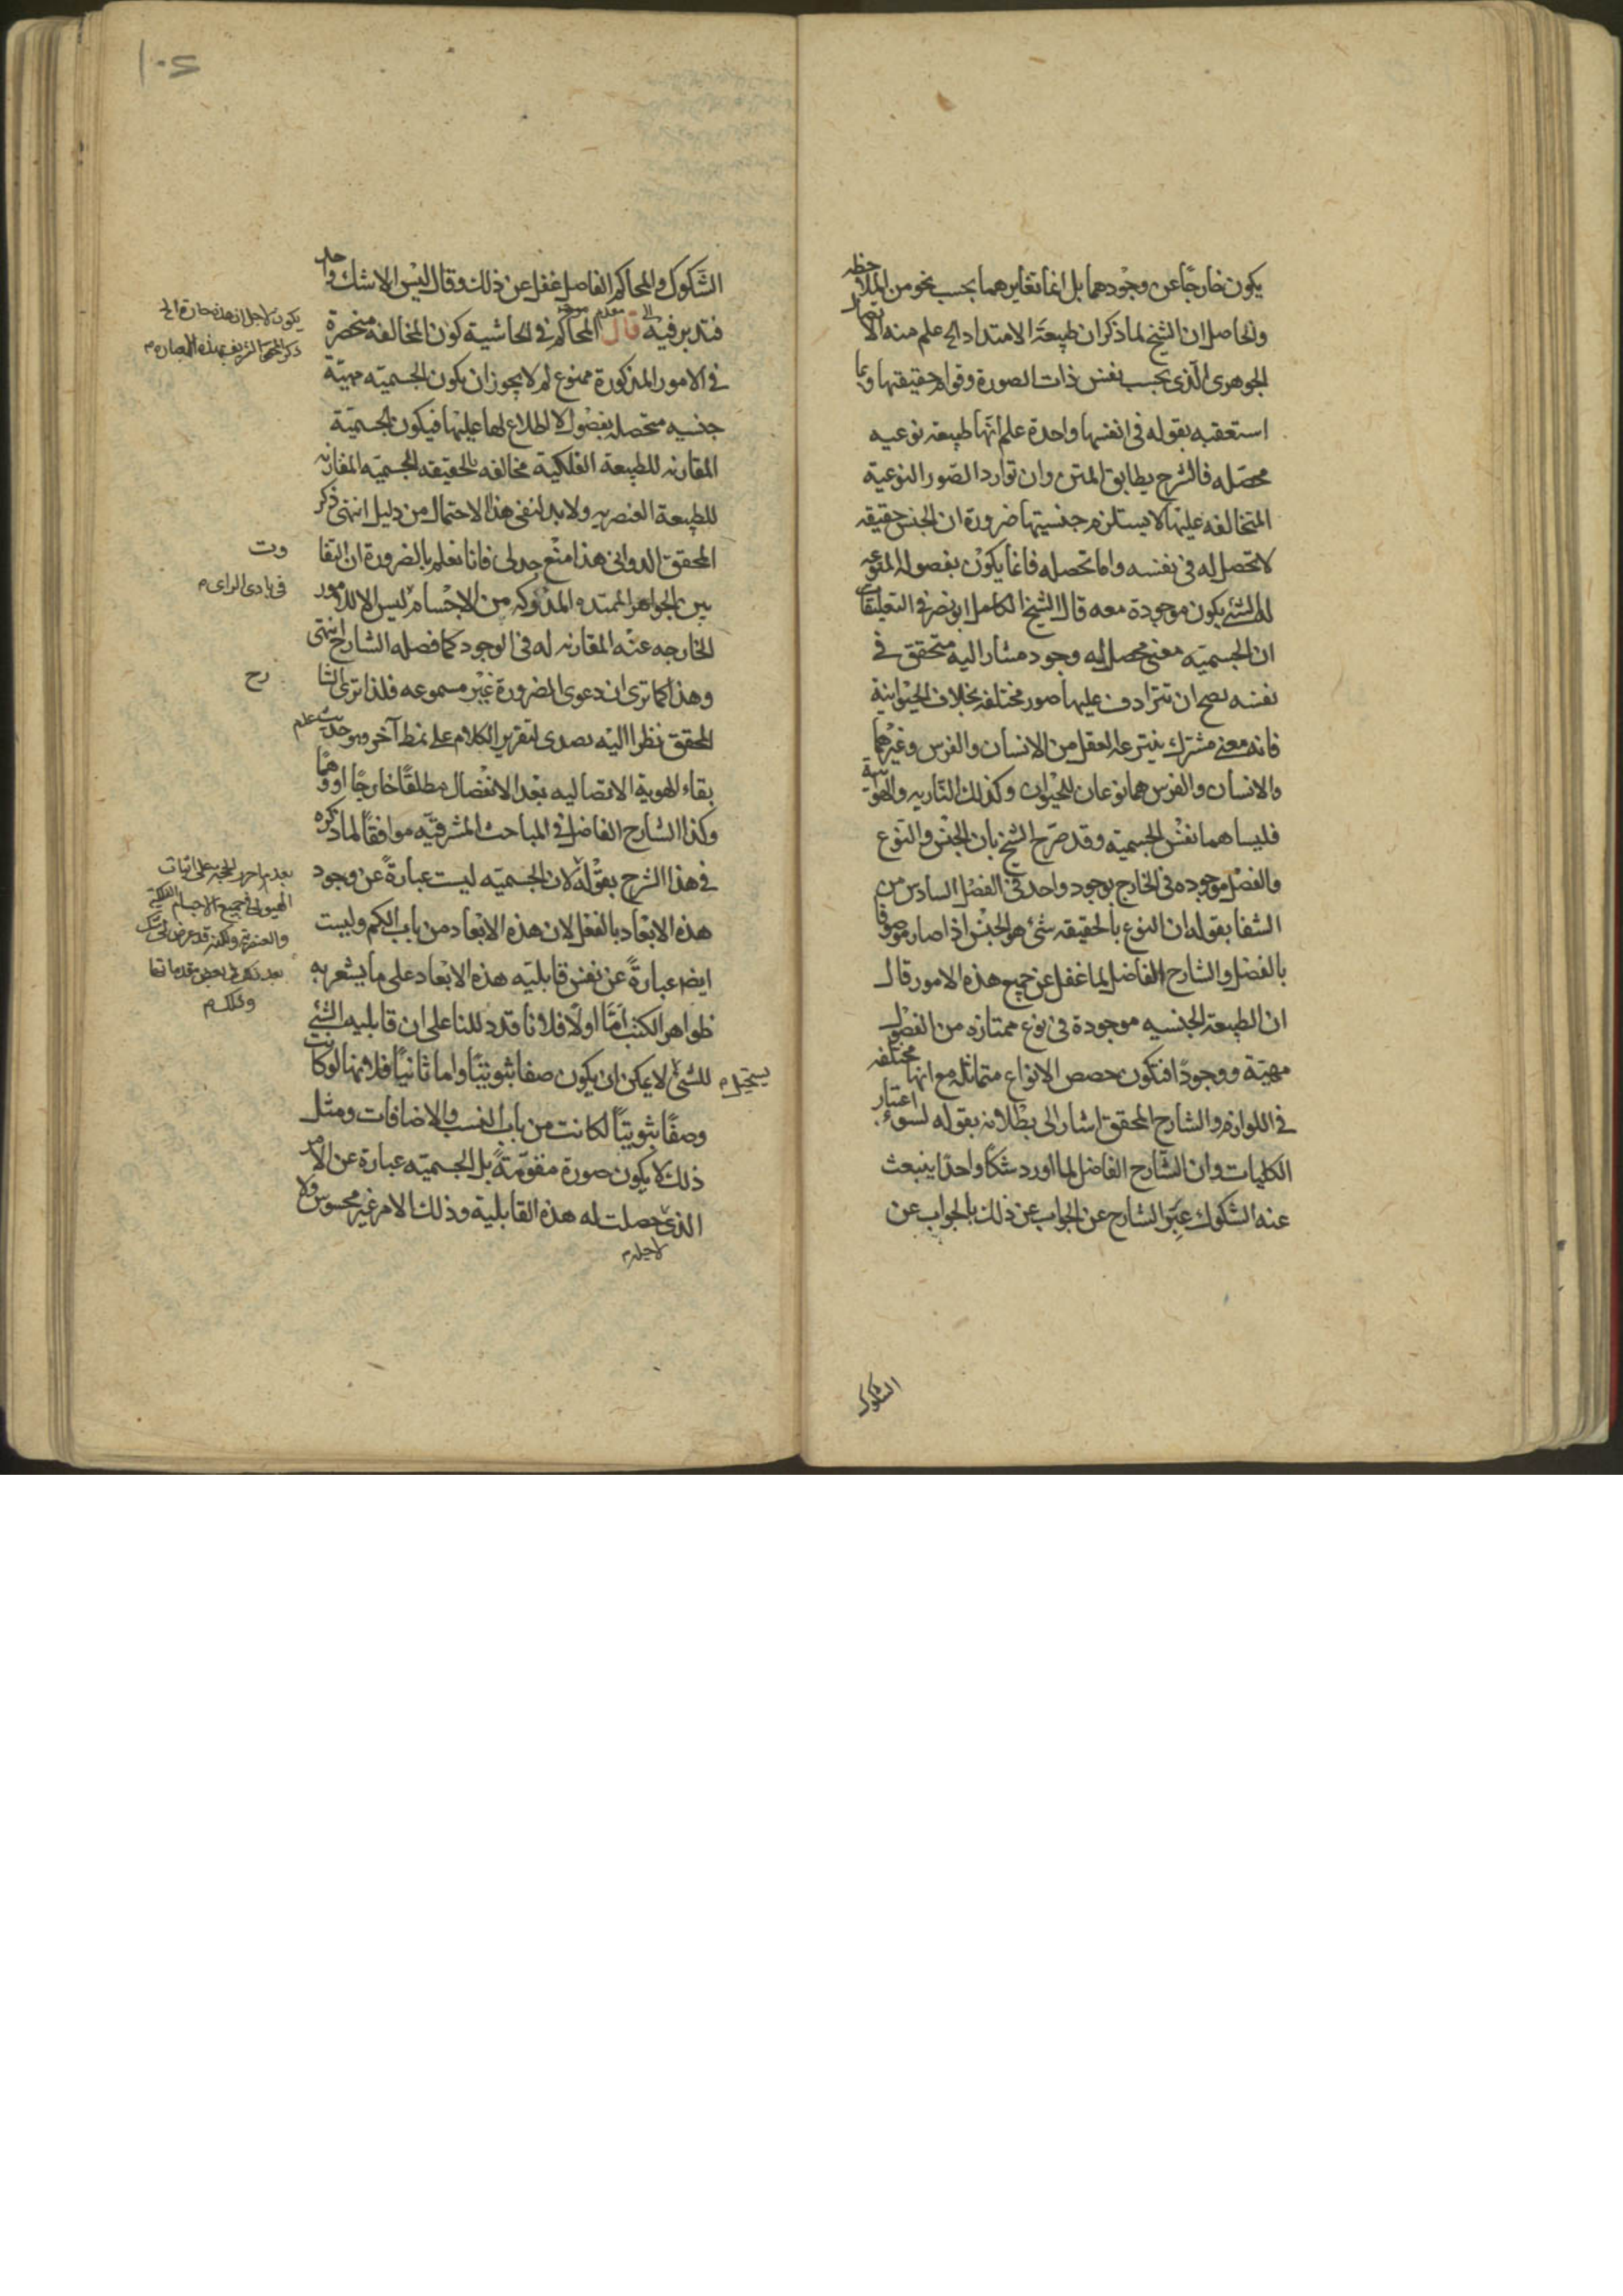 يكون خارجًا عن وجودهما بل انما تغايرهما بحسب نحو من الملاحظه
والحاصل ان الشيخ لما ذكر ان طبيعة الامتداد الخ علم منه الاتصال
الجوهرى الّذى بحسب نفس ذات الصورة وقوام حقيقتها وبما
استعقبه بقوله فى انفسها واحدة علم انها طبيعه نوعيه
محصّله فالشرح يطابق المتن وان توارد الصور النوعية
المتخالفه عليها لا يستلزم جنسيتها ضرورة ان الجنس حقيقه
لا تحصل له فى نفسه واما تحصله فانما يكون بفصوله المنوعه
الشئ يكون موجودة معه قال الشيخ الكامل ابو نصر فى التعليقات
ان الجسميّه معنى محصل له وجود مشار اليه متحقق فى
نفسه يصح ان تترادف عليها صور مختلفه بخلاف الحيوانية
فانه معنى مشترك ينتزعه العقل من الانسان والفرس وغيرهما
والانسان والفرس هما نوعان للحيوان وكذلك الناريه والهوئية
فليسا هما نفس الجسميّه وقد صرح الشيخ بان الجنس والنوع
والفصل موجوده فى الخارج بوجود واحد فى الفصل السادس من
الشفا بقوله ان النوع بالحقيقه شئ هو الجنس اذا صار موصوفا
بالفصل والشارح الفاضل لما غفل عن جميع هذه الامور قال
ان الطبيعة الجنسيه موجودة فى نوع ممتازه من الفصول
مهيّة ووجودًا فتكون حصص الانواع متماثله مع انها مختلفه
فى اللوازم والشارح المحقق اشار الى بطلانه بقوله لسوء اعتبار
الكليات وان الشّارح الفاضل لما اورد شكًا واحدًا ينبعث
عنه الشكوك عبّر الشارح عن الجواب عن ذلك بالجواب عن
الشكوك
الشّكوك والمحاكم الفاضل غفل عن ذلك وقال ليس الا شك واحد
فتدبر فيه قال المحاكم فى الحاشية كون المخالفه منحصرة
فى الامور المذكورة ممنوع لم لا يجوز ان يكون الجسميّه مهيّة
جنسيه متحصله بفصول لا اطلاع لها عليها فيكون الجسميّة
المقارنه للطبيعة الفلكية مخالفه بالحقيقه للجسميّه المقارنه
للطبيعة العنصريه ولا بد لنفى هذا الاحتمال من دليل انتهى ذكر
المحقق الدوانى هذا منع جدلى فانا نعلم بالضرورة ان التفا
وت
بين الجواهر الممتده المدركه من الاجسام ليس الا للامور
فى بادى الراى م
الخارجه عنه المقارنه له فى الوجود كما فصله الشارح انتهى
وهذا كما ترى ان دعوى الضرورة غير مسموعه فلذا ترى الشا
رح
المحقق نظرا اليه تصدى لتقرير الكلام على نمط آخر وهو حديث عدم
بقاء الهوية الاتصاليه بعد الانفصال مطلقًا خارجًا او وهمًا
وكذا الشارح الفاضل فى المباحث المشرقيّه موافقًا لما ذكره
فى هذا الشرح بقوله لان الجسميّه ليست عبارةً عن وجود
هذه الابعاد بالفعل لان هذه الابعاد من باب الكم وليست
ايضا عبارةً عن نفس قابليّه هذه الابعاد على ما يشعر به
ظواهر الكتب امّا اولًا فلانا قد دللنا على ان قابليه الشئ
للشئ لا يمكن ان يكون صفا ثبوتيًا واما ثانيًا فلانها لو كانت
يستحيل م
وصفًا ثبوتيًا لكانت من باب النسب والاضافات ومثل
ذلك لا يكون صورة مقوّمةً بل الجسميّه عبارة عن الامر
الذى حصلت له هذه القابلية وذلك الامر غير محسوس ولا
لاجله م
بعد م احرر الحجة على اثبات
الهيولى فى جميع الاجسام الفلكية
والعنصرية ولكنه قد عرض لى شك
بعد ذلك فى بعض مقدماتها
وذلك م